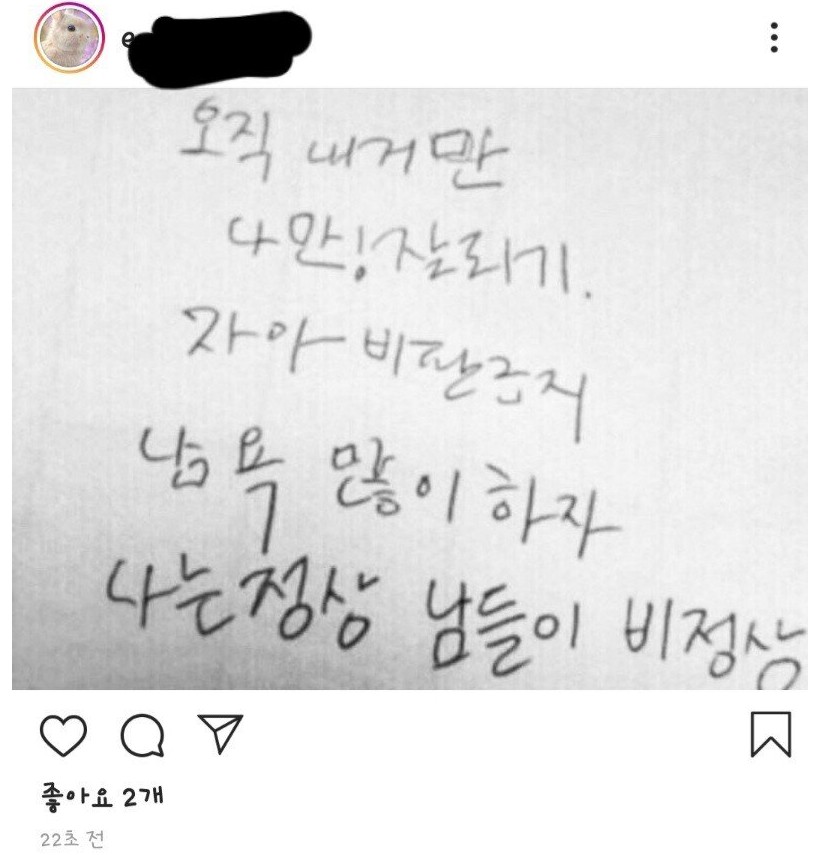 e
오직 내거만
나만! 잘리기.
자아비판금지
남 욕 많이 하자
나는정상 남들이 비정상
좋아요 2개
22초 전